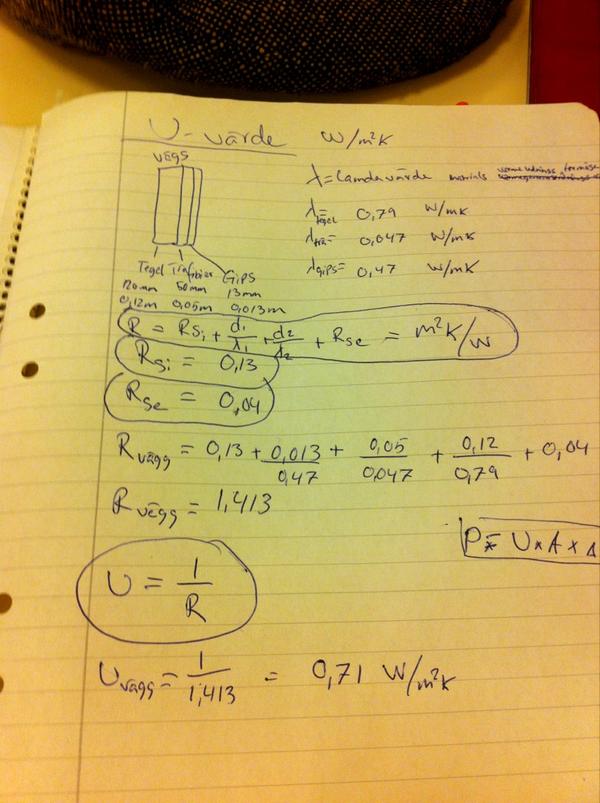 U-värde W/m²K
vägg
λ = Lamdavärde
λtegel = 0,79 W/mK
λträ = 0,047 W/mK
λgips = 0,47 W/mK
Tegel Träfiber Gips
120mm 50mm 13mm
0,12m 0,05m 0,013m
R = Rsi + d1/λ1 + d2/λ2 + Rse = m²K/W
Rsi = 0,13
Rse = 0,04
Rvägg = 0,13 + 0,013/0,47 + 0,05/0,047 + 0,12/0,79 + 0,04
Rvägg = 1,413
P = U × A × Δ
U = 1/R
Uvägg = 1/1,413 = 0,71 W/m²K